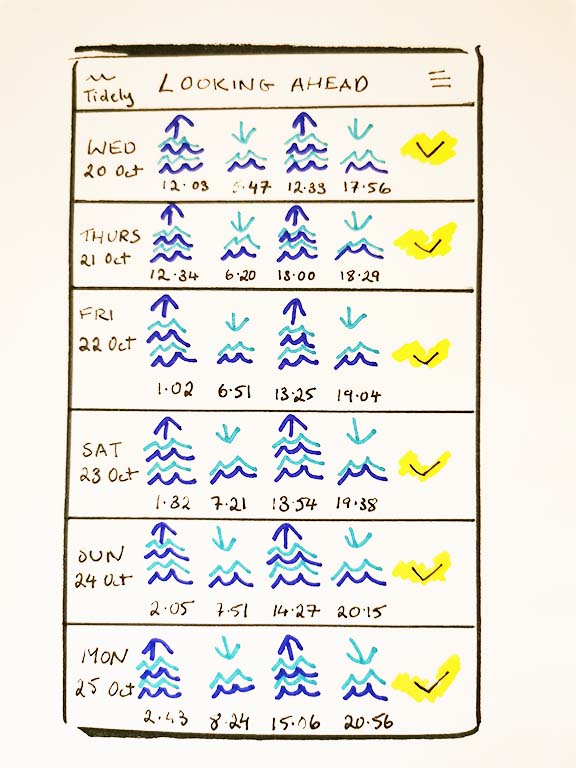 LOOKING AHEAD
Tidely
WED
20 Oct
12.03 5.47 12.33 17.56
THURS
21 Oct
12.34 6.20 13.00 18.29
FRI
22 Oct
1.02 6.51 13.25 19.04
SAT
23 Oct
1.32 7.21 13.54 19.38
SUN
24 Oct
2.05 7.51 14.27 20.15
MON
25 Oct
2.43 8.24 15.06 20.56